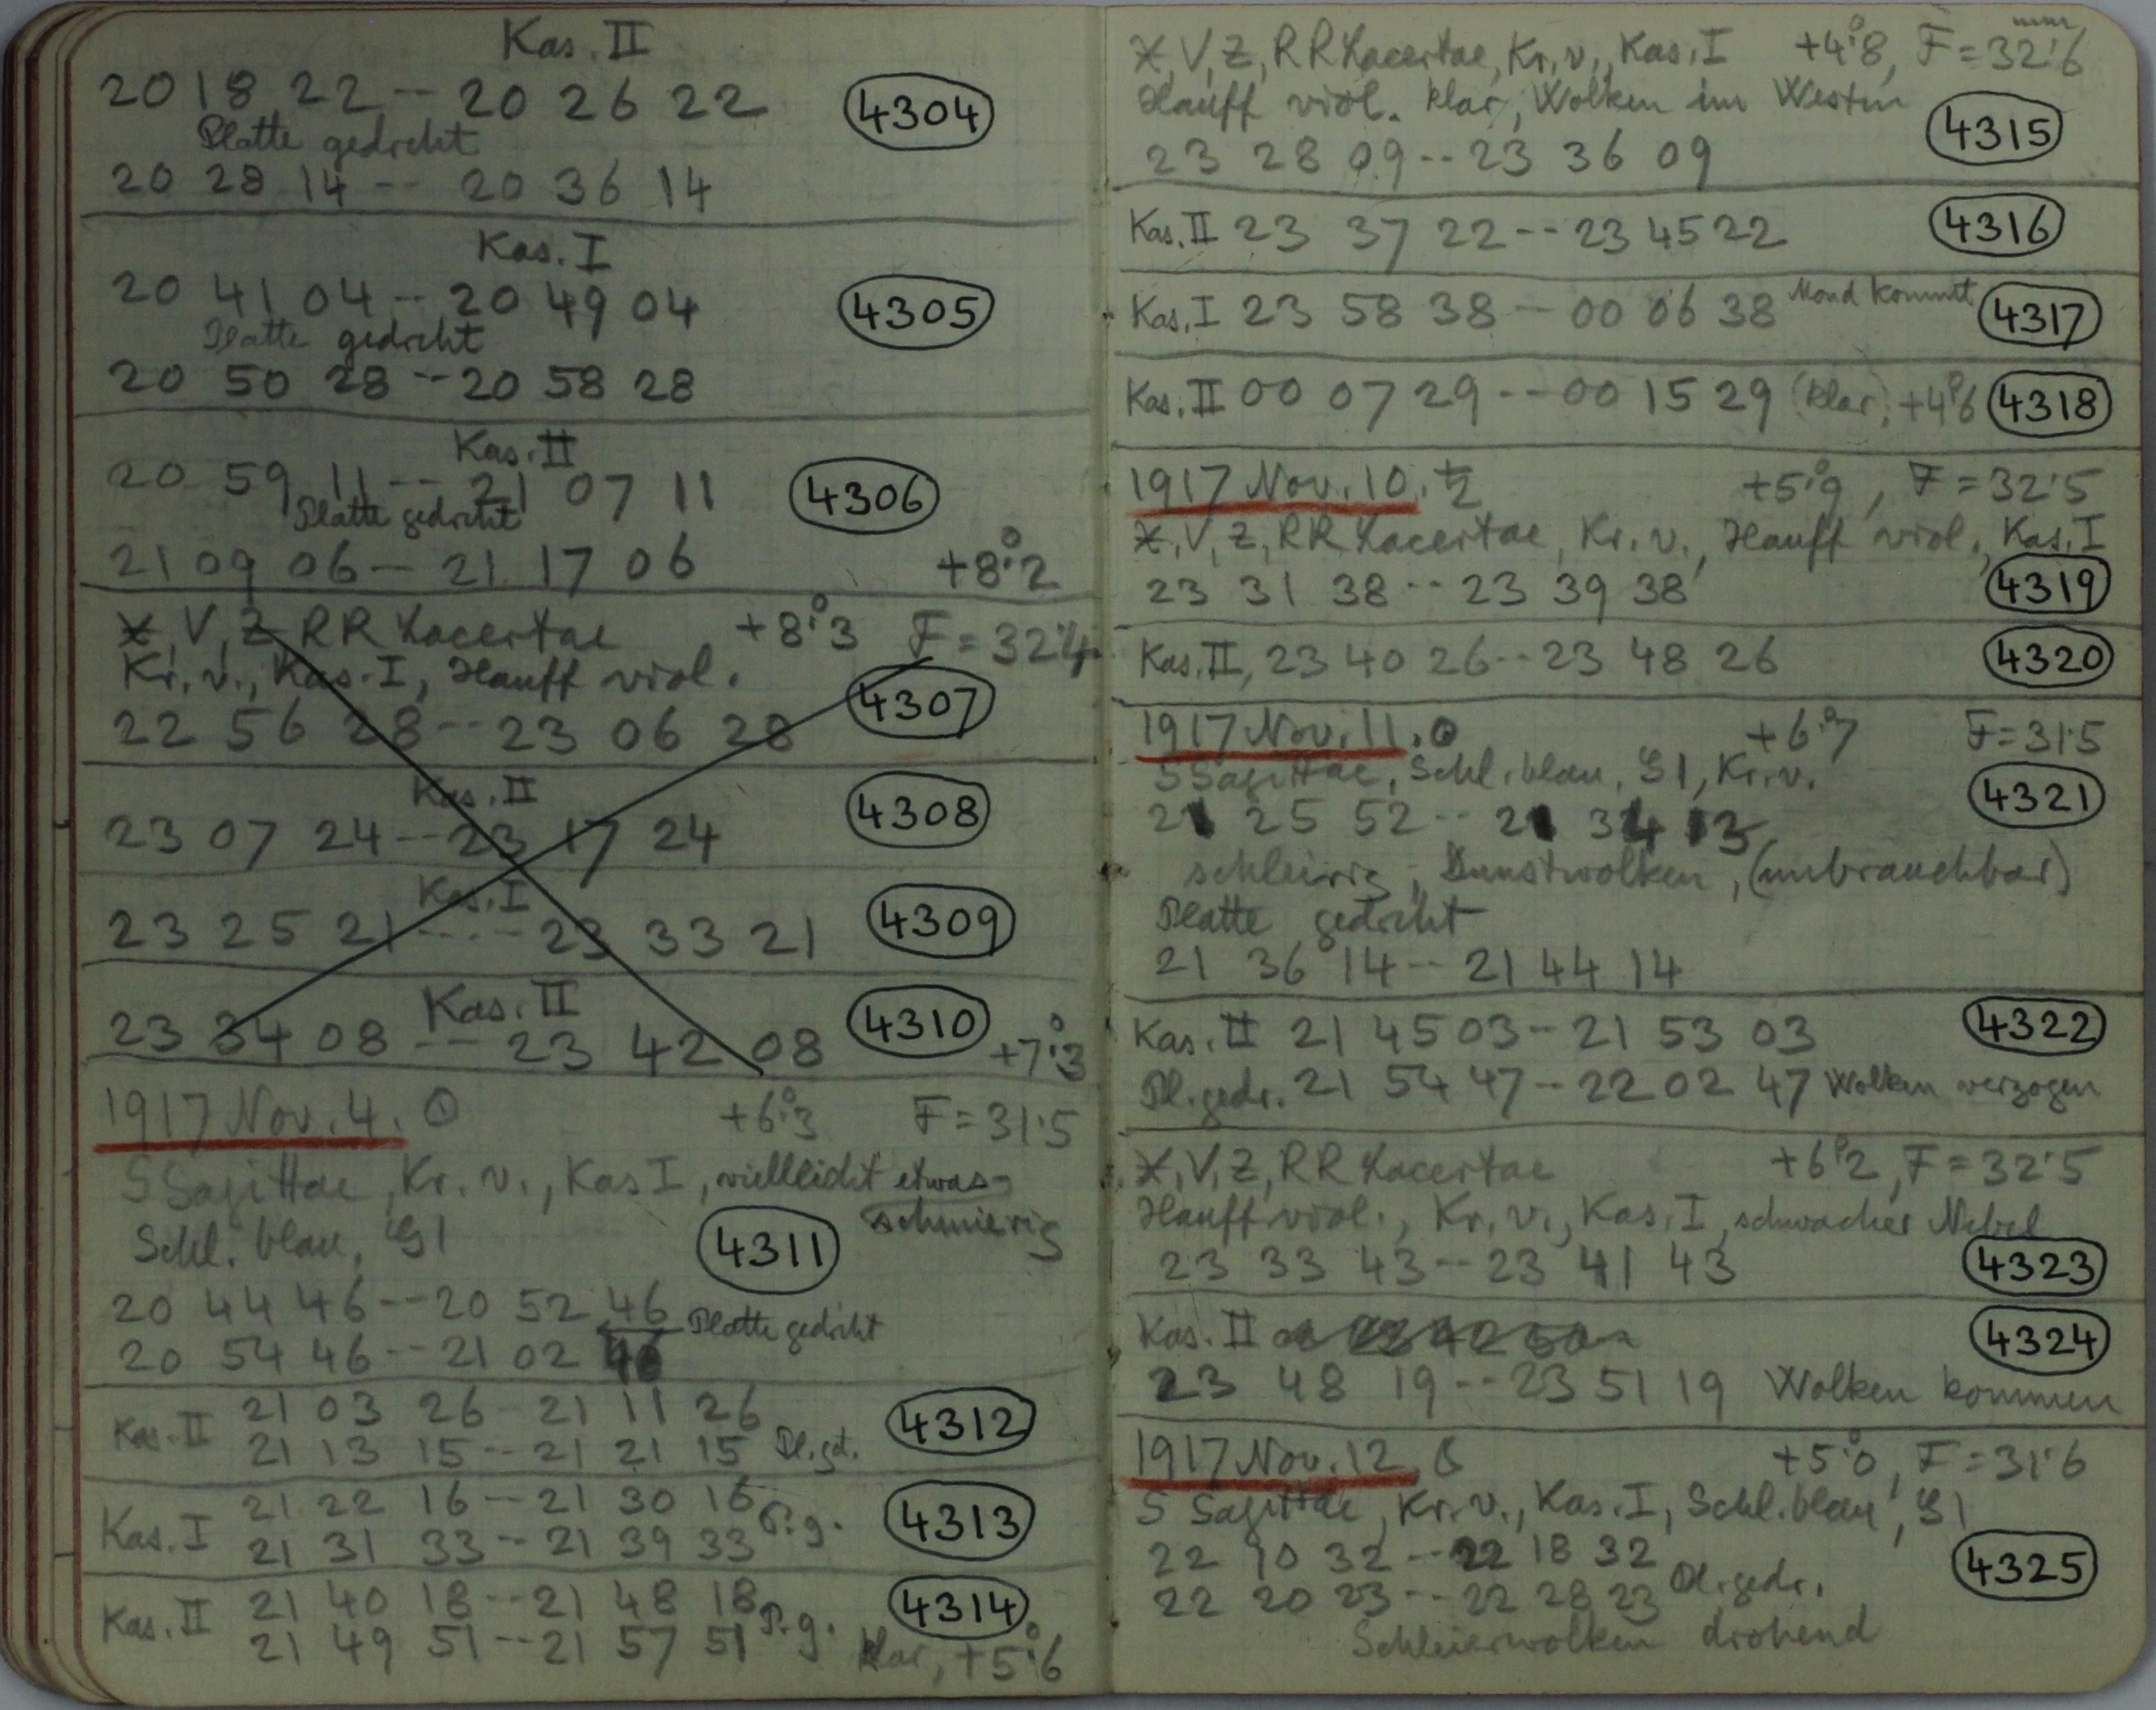 Kas. II
20 18 22 -- 20 26 22 4304
Platte gedreht
20 28 14 -- 20 36 14
Kas. I
20 41 04 -- 20 49 04 4305
Platte gedreht
20 50 28 -- 20 58 28
Kas. II
20 59 11 -- 21 07 11 4306
Platte gedreht
21 09 06 -- 21 17 06 +8°.2
X, V, Z, RR Lacertae +8°.3 F = 32.4
Kr. v., Kas. I, Hauff viol.
22 56 28 -- 23 06 28 4307
Kas. II
23 07 24 -- 23 17 24 4308
Kas. I
23 25 21 ---- 23 33 21 4309
Kas. II
23 34 08 -- 23 42 08 4310 +7°.3
1917 Nov. 4. ☉ +6°.3 F = 31.5
S Sagittae, Kr. v., Kas I, vielleicht etwas
schmierig
Schl. blau, G1 4311
20 44 46 -- 20 52 46 Platte gedreht
20 54 46 -- 21 02 46
Kas. II 21 03 26 - 21 11 26 4312
21 13 15 -- 21 21 15 Pl. gd.
Kas. I 21 22 16 -- 21 30 16 P. g. 4313
21 31 33 -- 21 39 33
Kas. II 21 40 18 -- 21 48 18 P. g. 4314
21 49 51 -- 21 57 51 klar, +5°.6
X, V, Z, RR Lacertae, Kr. v., Kas. I +4°.8, F = 32.6 mm
Hauff viol. klar, Wolken im Westen
23 28 09 -- 23 36 09 4315
Kas. II 23 37 22 -- 23 45 22 4316
Kas. I 23 58 38 -- 00 06 38 Mond kommt 4317
Kas. II 00 07 29 -- 00 15 29 (klar), +4°.6 4318
1917 Nov. 10. ♄ +5°.9, F = 32.5
X, V, Z, RR Lacertae, Kr. v., Hauff viol., Kas. I
23 31 38 -- 23 39 38 4319
Kas. II, 23 40 26 -- 23 48 26 4320
1917 Nov. 11. ☉ +6°.7 F = 31.5
S Sagittae, Schl. blau, G1, Kr. v.
21 25 52 -- 21 34 13 4321
schleirig, Dunstwolken, (unbrauchbar)
Platte gedreht
21 36 14 -- 21 44 14
Kas. II 21 45 03 -- 21 53 03 4322
Pl. gedr. 21 54 47 -- 22 02 47 Wolken verzogen
X, V, Z, RR Lacertae +6°.2, F = 32.5
Hauff viol., Kr. v., Kas. I, schwacher Nebel
23 33 43 -- 23 41 43 4323
Kas. II 4324
23 48 19 -- 23 51 19 Wolken kommen
1917 Nov. 12. ☾ +5°.0, F = 31.6
S Sagittae, Kr. v., Kas. I, Schl. blau, G1
22 10 32 -- 22 18 32 4325
22 20 23 -- 22 28 23 Pl. gedr.
Schleierwolken drohend